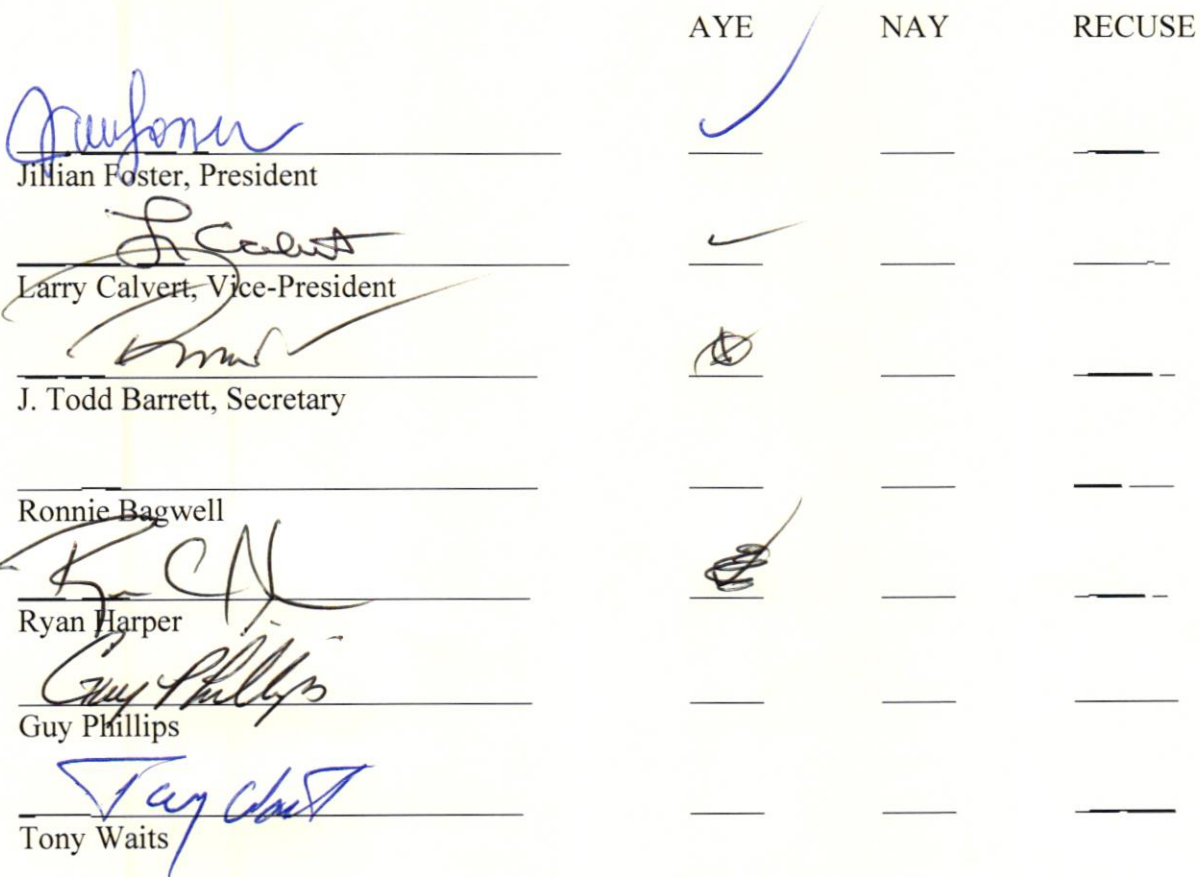 AYE NAY RECUSE
Jillian Foster, President
L Calvert
Larry Calvert, Vice-President
J. Todd Barrett, Secretary
Ronnie Bagwell
Ryan Harper
Guy Phillips
Guy Phillips
Tony Waits
Tony Waits